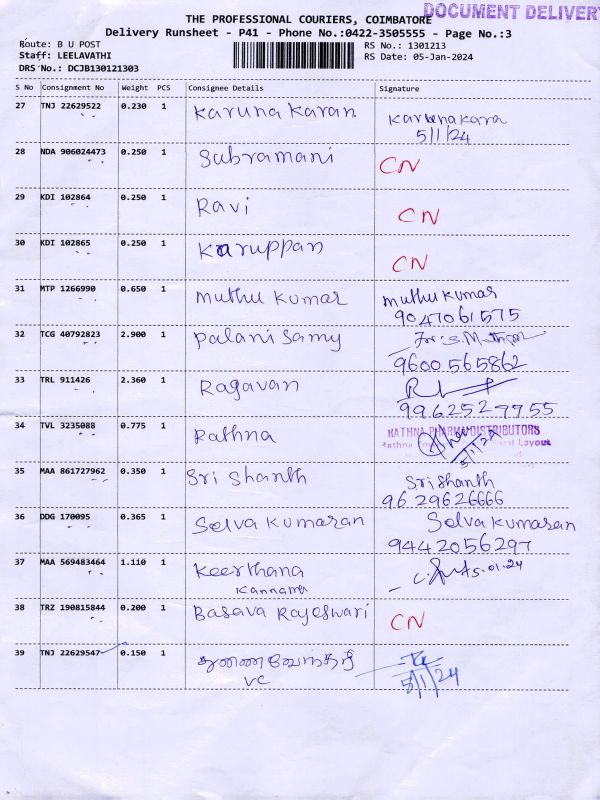 DOCUMENT DELIVERY
THE PROFESSIONAL COURIERS, COIMBATORE
Delivery Runsheet - P41 - Phone No.:0422-3505555 - Page No.:3
Route: B U POST
RS No.: 1301213
Staff: LEELAVATHI
RS Date: 05-Jan-2024
DRS No.: DCJB130121303
S No Consignment No Weight PCS Consignee Details Signature
27 TNJ 22629522 0.230 1 Karuna Karan Karunakara
5/1/24
28 NDA 906024473 0.250 1 Subramani CN
29 KDI 102864 0.250 1 Ravi CN
30 KDI 102865 0.250 1 Karuppan CN
31 MTP 1266990 0.650 1 Muthu Kumar Muthu Kumar
9047061575
32 TCG 40792823 2.900 1 Palani Samy
9600565862
33 TRL 911426 2.360 1 Ragavan
9962527755
34 TVL 3235088 0.775 1 Rathna RATHNA PHARMA DISTRIBUTORS
Layout
5/1/24
35 MAA 861727962 0.350 1 Sri Shanth Sri Shanth
9629626666
36 DDG 170095 0.365 1 Selva Kumaran Selva Kumaran
9442056297
37 MAA 569483464 1.110 1 Keerthana
Kannama
38 TRZ 190815844 0.200 1 Basava Rajeswari CN
39 TNJ 22629547 0.150 1
VC 5/1/24